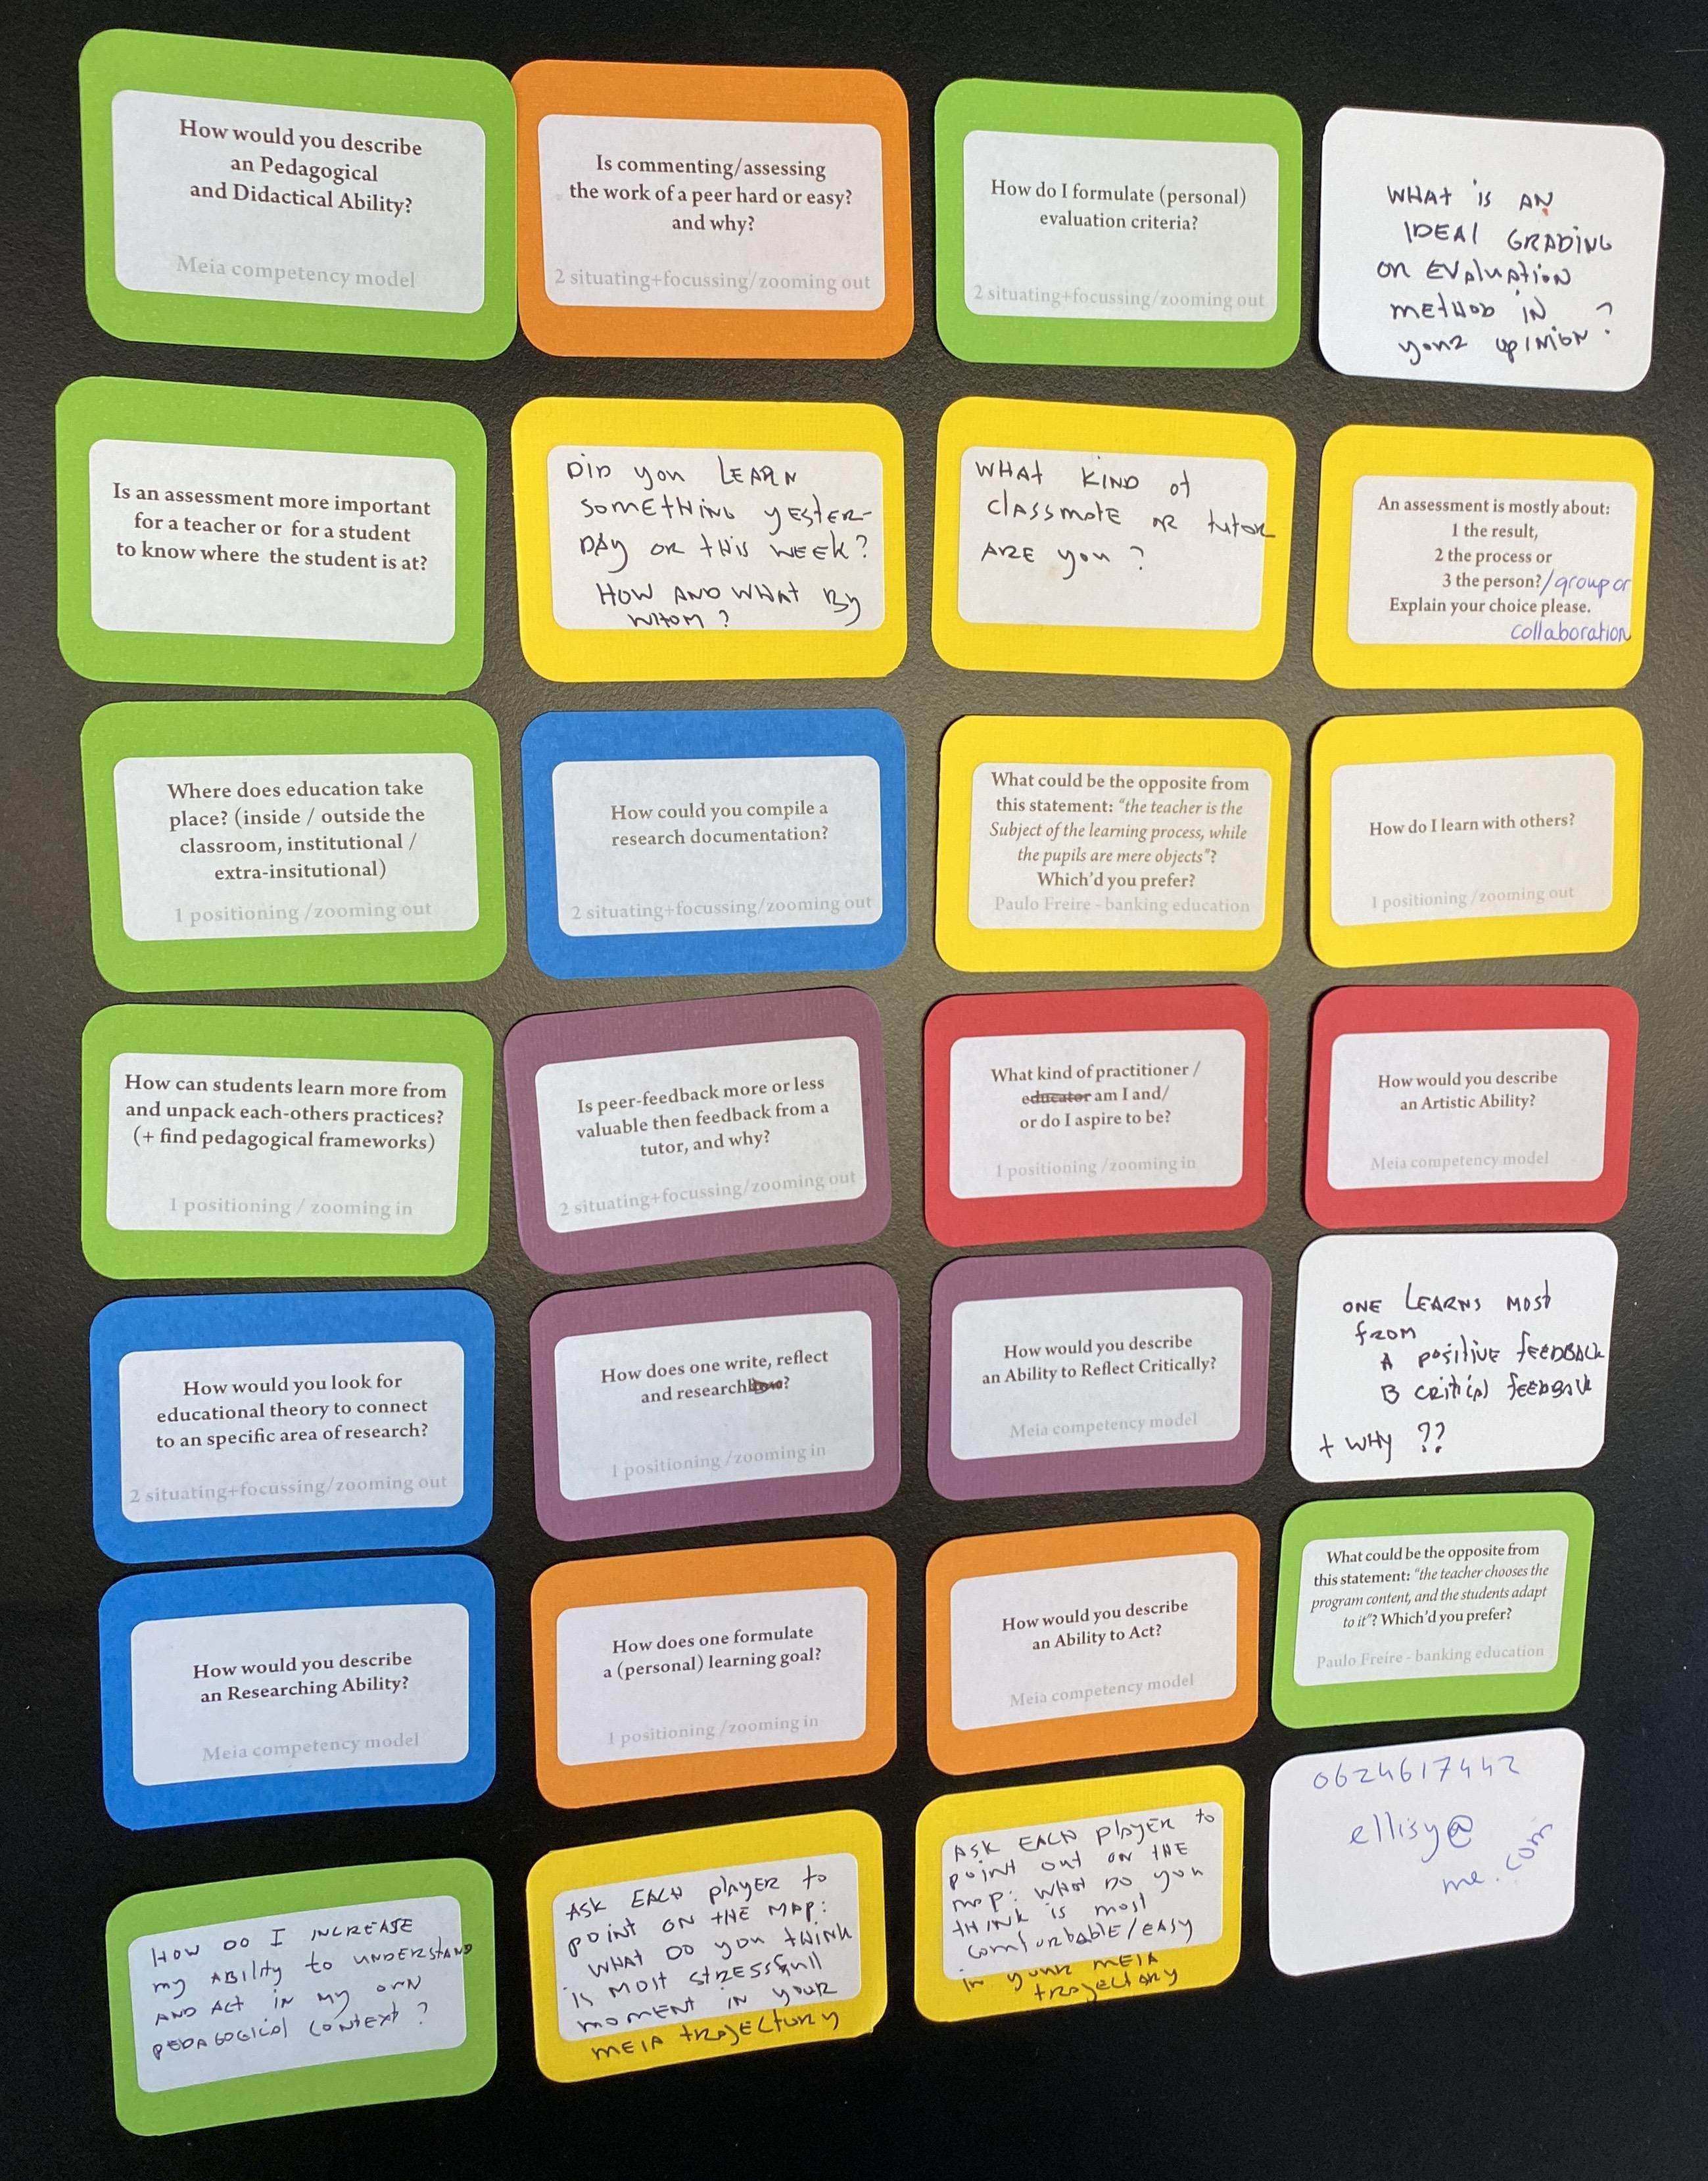 How would you describe
an Pedagogical
and Didactical Ability?
Meia competency model
Is commenting/assessing
the work of a peer hard or easy?
and why?
2 situating+focussing/zooming out
How do I formulate (personal)
evaluation criteria?
2 situating+focussing/zooming out
WHAT iS AN
IDEAl GRADING
OR EVALUATION
METHOD IN
youR OPINION?
Is an assessment more important
for a teacher or for a student
to know where the student is at?
DID you LEARN
SOMETHING yESTER-
DAY OR tHiS WEEK?
HOW AND WHAT By
WHOM?
WHAT KIND of
classmate OR tutor
ARE you?
An assessment is mostly about:
1 the result,
2 the process or
3 the person?/group or
Explain your choice please.
collaboration
Where does education take
place? (inside / outside the
classroom, institutional /
extra-insitutional)
1 positioning /zooming out
How could you compile a
research documentation?
2 situating+focussing/zooming out
What could be the opposite from
this statement: "the teacher is the
Subject of the learning process, while
the pupils are mere objects"?
Which'd you prefer?
Paulo Freire - banking education
How do I learn with others?
1 positioning /zooming out
How can students learn more from
and unpack each-others practices?
(+ find pedagogical frameworks)
1 positioning / zooming in
Is peer-feedback more or less
valuable then feedback from a
tutor, and why?
2 situating+focussing/zooming out
What kind of practitioner /
educator am I and/
or do I aspire to be?
1 positioning /zooming in
How would you describe
an Artistic Ability?
Meia competency model
How would you look for
educational theory to connect
to an specific area of research?
2 situating+focussing/zooming out
How does one write, reflect
and research?
1 positioning /zooming in
How would you describe
an Ability to Reflect Critically?
Meia competency model
ONE LEARNS MOST
fROM
A positive fEEDBACK
B critical fEEDBACK
+ WHY ??
How would you describe
an Researching Ability?
Meia competency model
How does one formulate
a (personal) learning goal?
1 positioning /zooming in
How would you describe
an Ability to Act?
Meia competency model
What could be the opposite from
this statement: "the teacher chooses the
program content, and the students adapt
to it"? Which'd you prefer?
Paulo Freire - banking education
HOW DO I INCREASE
my ABility to UNDERSTAND
AND ACT iN my OWN
PEDAGOGICAl CONTEXT?
ASK EACH plAyER to
point ON tHE MAP:
WHAT DO you tHINK
is MOST STRESSfull
MOMENT IN yOUR
MEIA tRAJECTORY
ASK EACH PlAyER to
point out ON tHE
map: WHAT DO you
tHINK is most
comfortable/EASY
in your MEIA
trajectory
0624617442
ellisy@
me.com